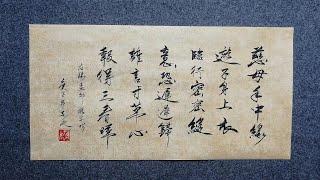 慈母手中線
遊子身上衣
臨行密密縫
意恐遲遲歸
誰言寸草心
報得三春暉